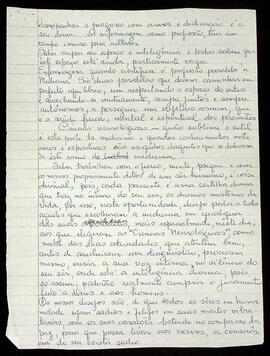 Acompanhar o progresso com amor e dedicação é o
seu dever. A enfermagem como profissão, tem um
campo imenso para cultivar.
Cabe ocupar seu espaço e inteligência e todos sabem que
este espaço está ainda, praticamente vazio.
Enfermagem quando científica é profissão paralela a
Medicina. São duas paralelas que devem caminhar em
perfeito equilíbrio, um respeitando o espaço do outro
e auxiliando-se mutuamente, sempre juntos e sempre
autônomos, a perseguir um objetivo comum, que
é a saúde física, mental e espiritual dos pacientes
Ciências neurológicas - quão sublime e sutil
é esta parte da medicina, e quantos conhecimentos mate
riais e espirituais são exigidos daqueles que se dedicam
a este ramo da medicina.
Saber trabalhar com o físico, mente, porque o cor
po nosso propriamente ditos de um ser humano, é coisa
divinal, pois, cada paciente é uma centelha divina
que traz no íntimo do seu ser, os dramas milenares da
vida. Por isso, nesta oportunidade, desejo pedir a todos
aqueles que escolheram a medicina em qualquer
das suas especialidades, mais especialmente, neste dia,
aos que elegeram as "Ciências Neurológicas" como
meta das suas caminhadas, que atentem bem,
antes de concluirem um diagnóstico, procurem
mesmo, ouvir a voz interna, no silêncio do
seu ser, onde está a inteligência divina, pois,
só assim, poderão realmente cumprir o juramento
feito a Deus e aos homens.
Os nossos desejos são, de que todos os seres em huma
nidade sejam sadios e felizes em suas mentes vibra
tórias com os seus corações batendo no compasso da
paz, para que possa levar aos nervos, a consciên
cia do seu estado sadio.